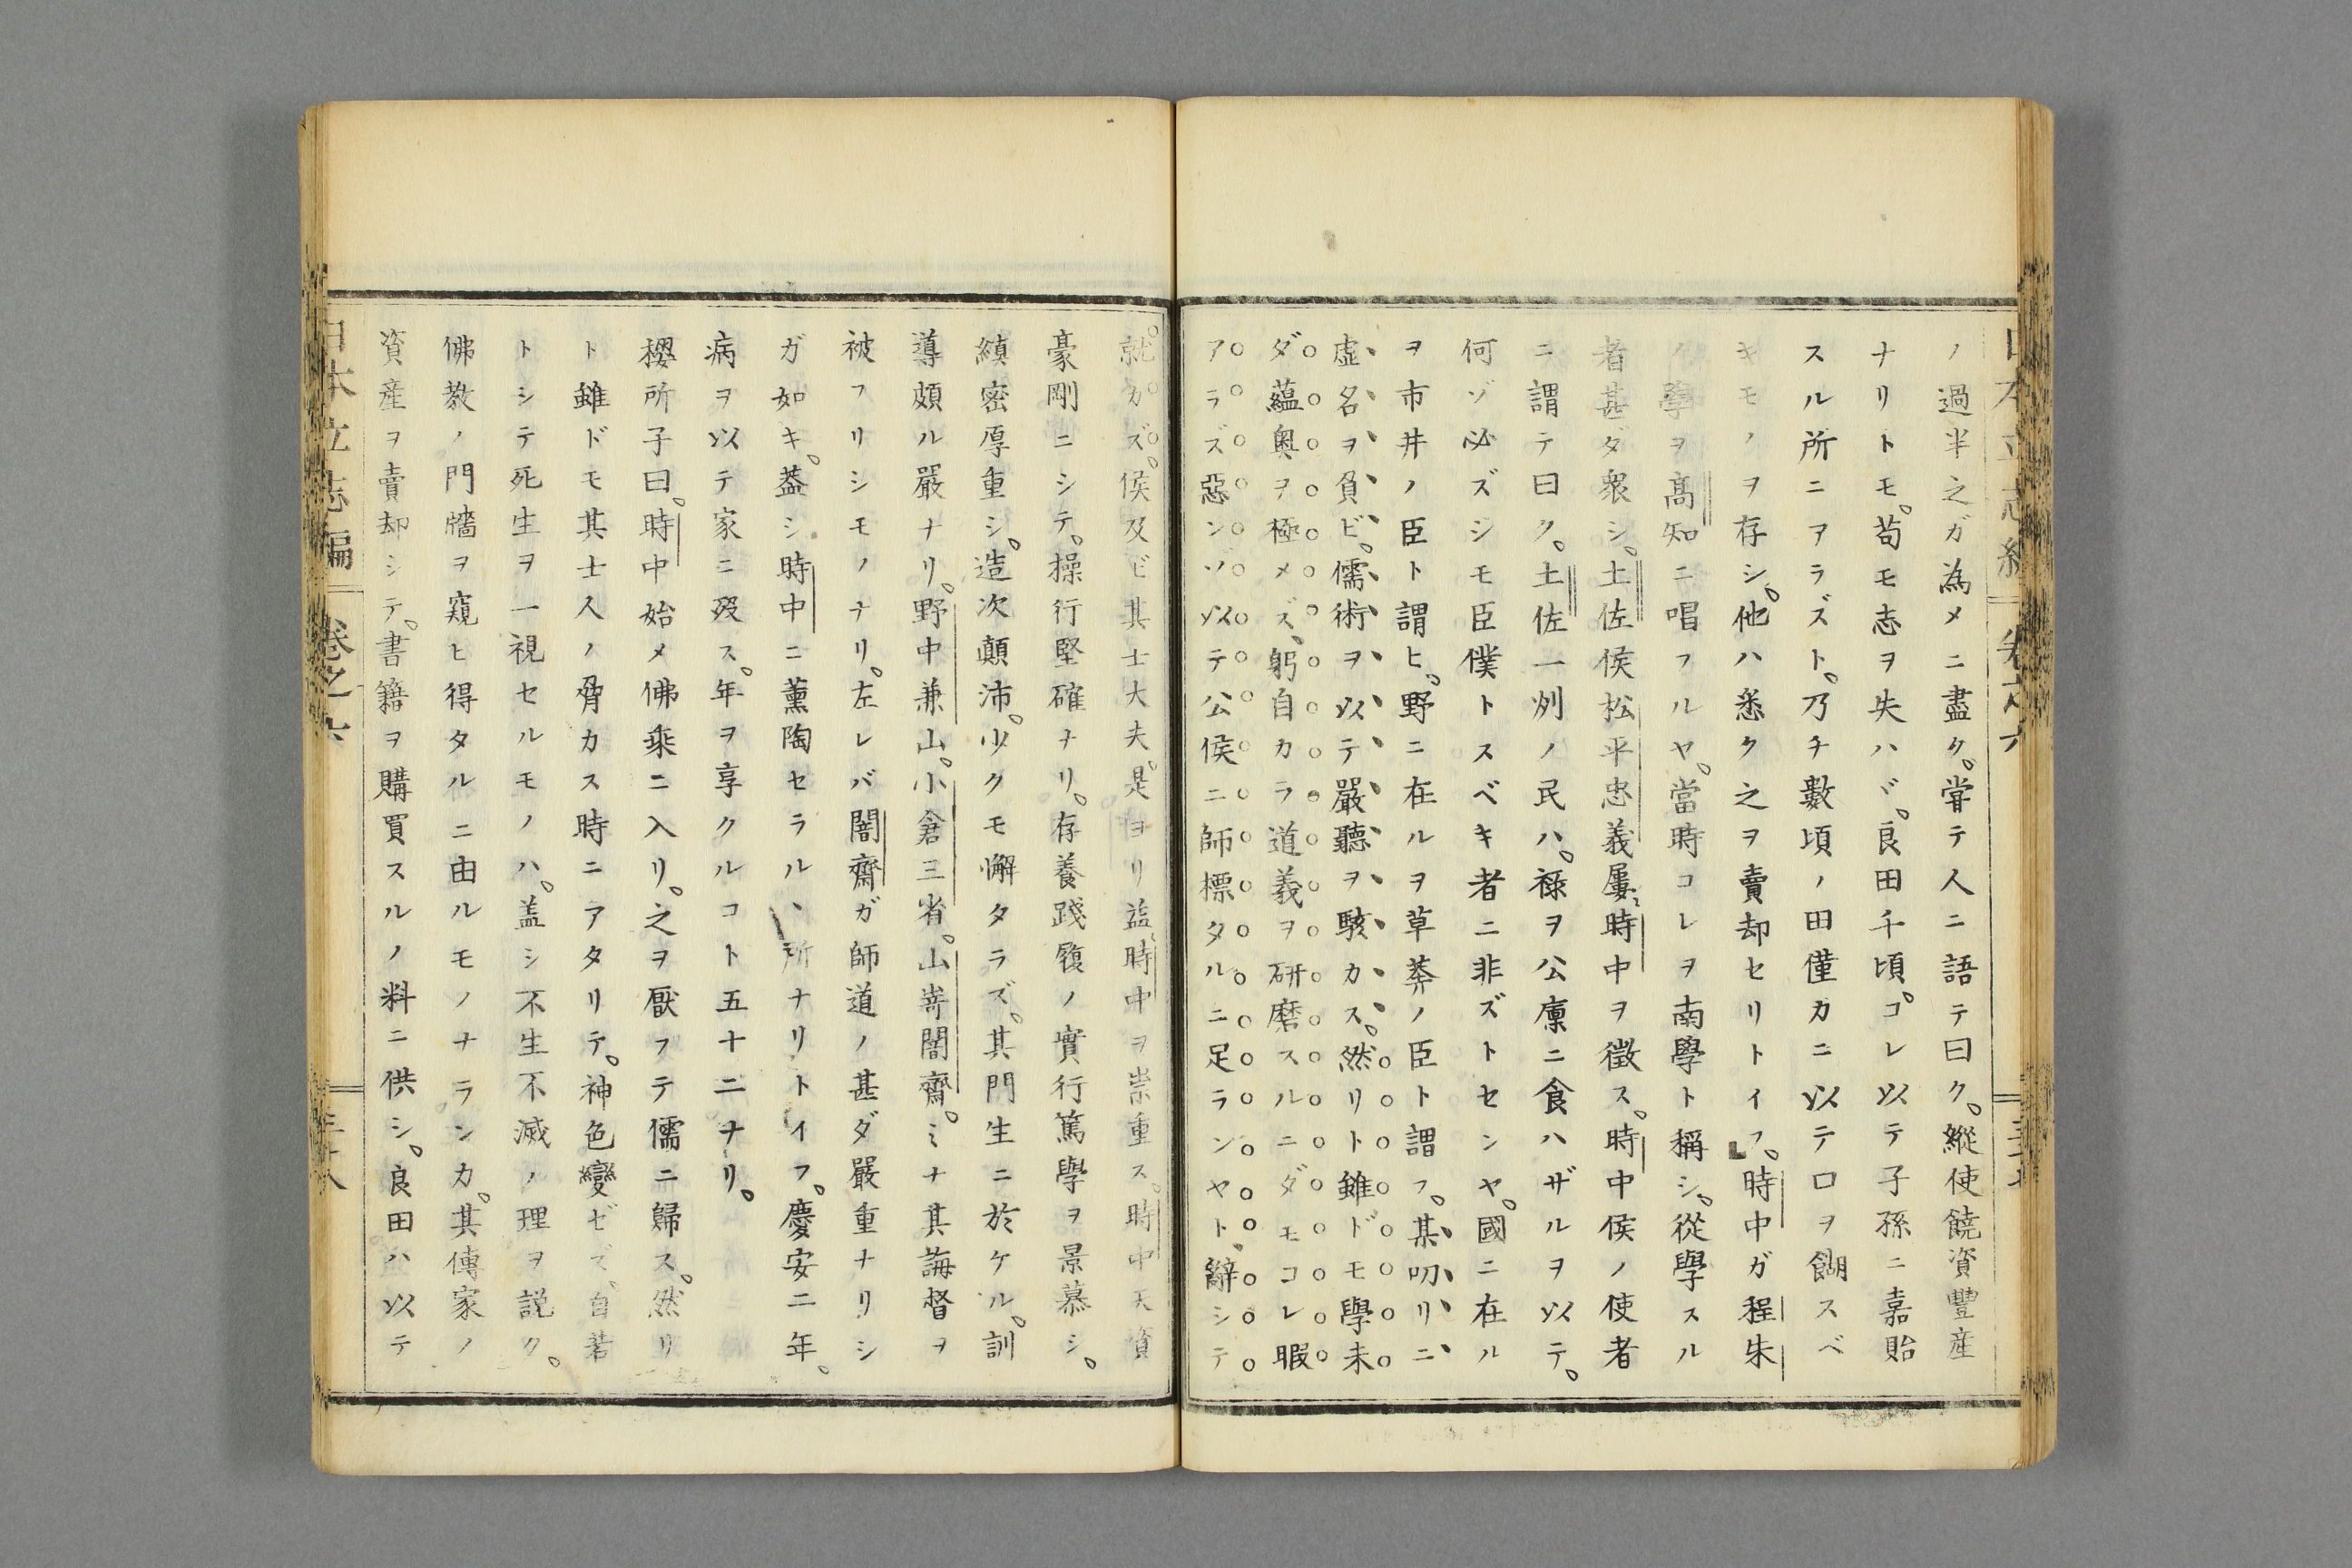 ノ過半之ガ為メニ盡ク。甞テ人ニ語テ曰ク。縱使饒資豐産
ナリトモ。苟モ志ヲ失ハヾ。良田千頃。コレ以テ子孫ニ嘉貽
スル所ニアラズト。乃チ數頃ノ田僅カニ以テ口ヲ餬スベ
キモノヲ存シ。他ハ悉ク之ヲ賣却セリトイフ。時中ガ程朱
ノ學ヲ髙知ニ唱フルヤ。當時コレヲ南學ト稱シ。從學スル
者甚ダ衆シ。土佐侯松平忠義屢〻時中ヲ徵ス。時中侯ノ使者
ニ謂テ曰ク。土佐一州ノ民ハ。祿ヲ公廩ニ食ハザルヲ以テ。
何ゾ必ズシモ臣僕トスベキ者ニ非ズトセンヤ。國ニ在ル
ヲ市井ノ臣ト謂ヒ。野ニ在ルヲ草莽ノ臣ト謂フ。某叨リニ
虛名ヲ負ビ。儒術ヲ以テ嚴聽ヲ駭カス。然リト雖ドモ學未
ダ蘊奥ヲ極メズ、躬自カラ道義ヲ研磨スルニダモコレ暇
アラズ惡ンゾ以テ公侯ニ師標タルニ足ランヤト、辭シテ
日本立志編 卷之六
就カズ。侯及ビ其士大夫。是ヨリ益時中ヲ崇重ス。時中天資
豪剛ニシテ。操行堅確ナリ。存養踐履ノ實行篤學ヲ景慕シ。
縝密厚重シ。造次顛沛。少クモ懈タラズ。其門生ニ於ケル。訓
導頗ル嚴ナリ。野中兼山。小倉三省。山嵜闇齋。ミナ其誨督ヲ
被フリシモノナリ。左レバ闇齋ガ師道ノ甚ダ嚴重ナリシ
ガ如キ。蓋シ時中ニ薰陶セラルヽ所ナリトイフ。慶安二年。
病ヲ以テ家ニ歿ス。年ヲ享クルコト五十二ナリ。
櫻所子曰。時中始メ佛乘ニ入リ。之ヲ厭フテ儒ニ歸ス。然リ
ト雖ドモ其士人ノ脅カス時ニアタリテ。神色變ゼズ。自若
トシテ死生ヲ一視セルモノハ。盖シ不生不滅ノ理ヲ説ク。
佛敎ノ門牆ヲ窺ヒ得タルニ由ルモノナランカ。其傳家ノ
資産ヲ賣却シテ。書籍ヲ購買スルノ料ニ供シ。良田ハ以テ
日本立志編 卷之六